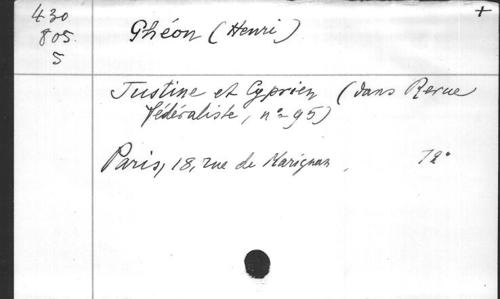 430
805.
5
+
Ghéon (Henri)
Justine et Cyprien (dans Revue
fédéraliste, nº 95)
Paris, 18, rue de Marignan, 12º